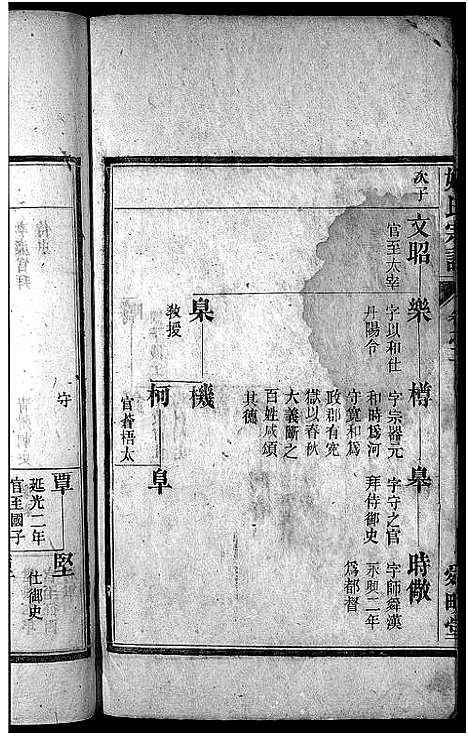 氏宗譜
舜畊堂
次子
文昭
官至太宰
樂
字以和仕
丹陽令
樽
字宗器元
和時爲河
守寬和爲
政郡有寃
獄以春秋
大義斷之
百姓咸頌
其德
皋
字守之官
拜侍御史
時儆
字師舜漢
永興二年
爲都督
臯
教授
機
柯
官蒼梧太
守
阜
覃
延光二年
官至國子
堅
仕御史